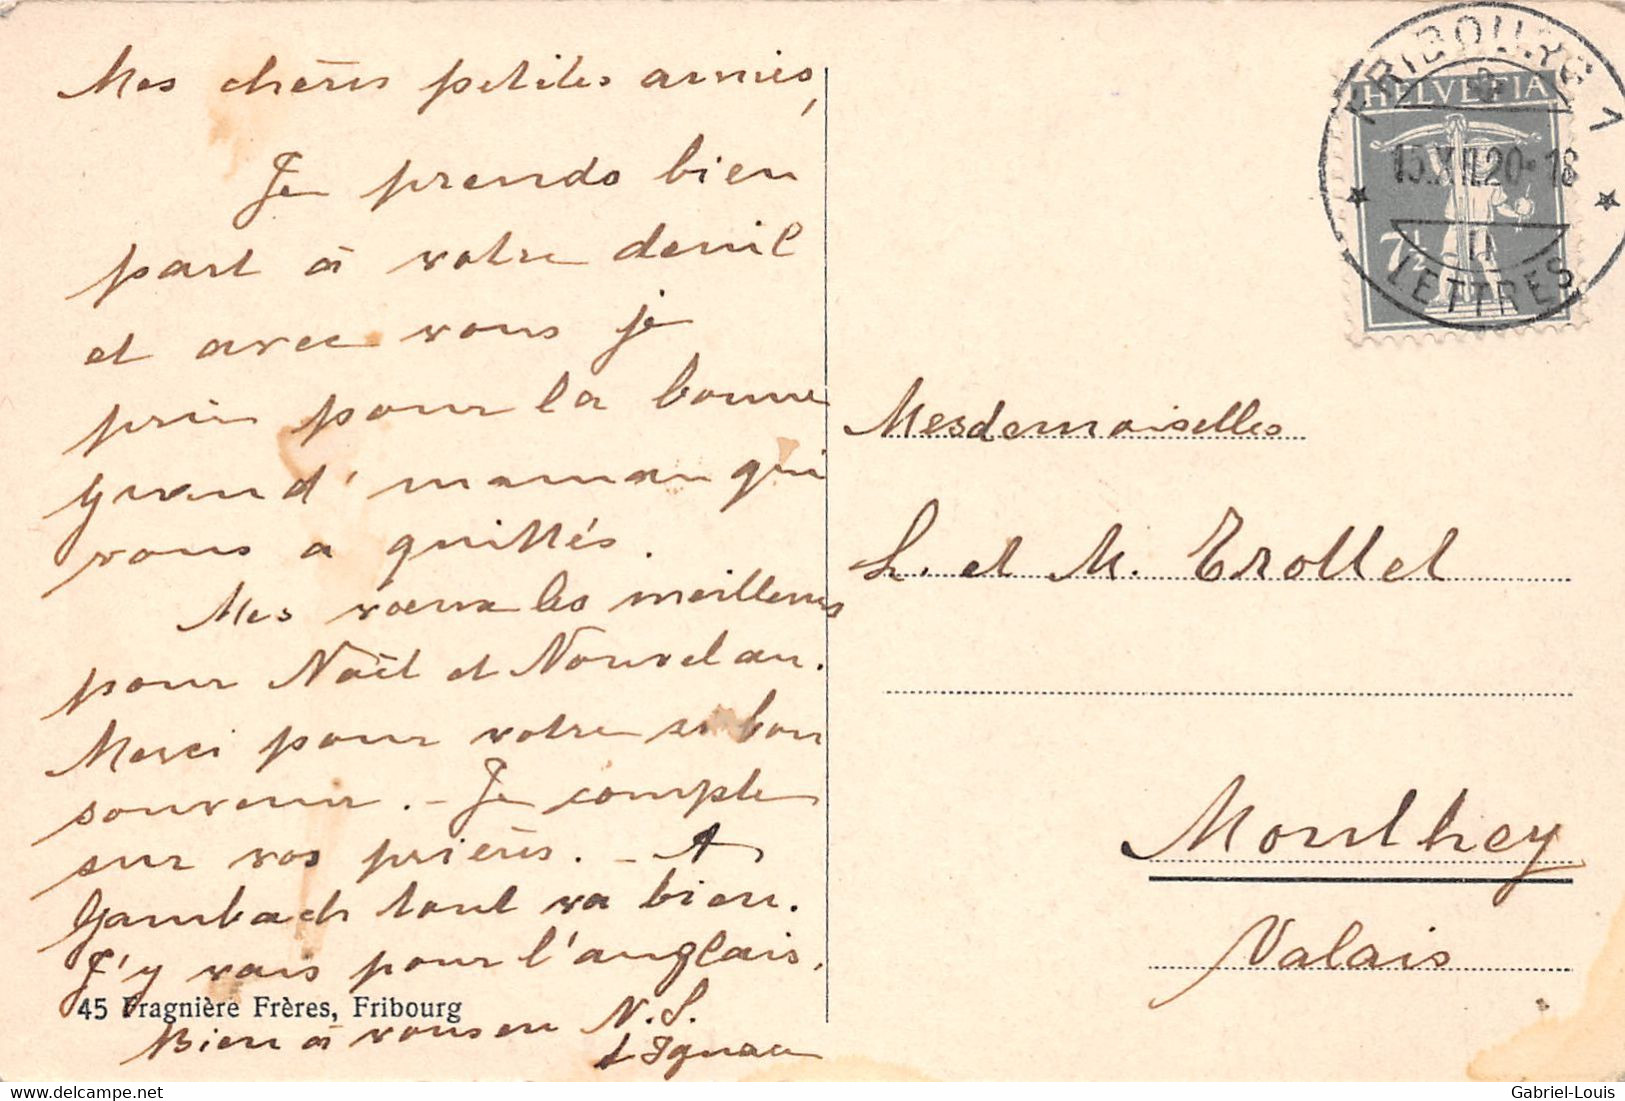 Mes chères petites amies,
Je prends bien
part à votre deuil
et avec vous je
prie pour la bonne
grand'maman qui
vous a quittés.
Mes voeux les meilleurs
pour Noël et Nouvel an.
Merci pour votre si bon
souvenir. - Je compte
sur vos prières. - A
Gambach tout va bien.
J'y vais pour l'anglais.
45 Fragnière Frères, Fribourg
Bien à vous en N. S.
Ignace
FRIBOURG 1
HELVETIA
15.XII.20-18
7½
LETTRES
Mesdemoiselles
L. et M. Trottet
Monthey
Valais
www.delcampe.net
Gabriel-Louis